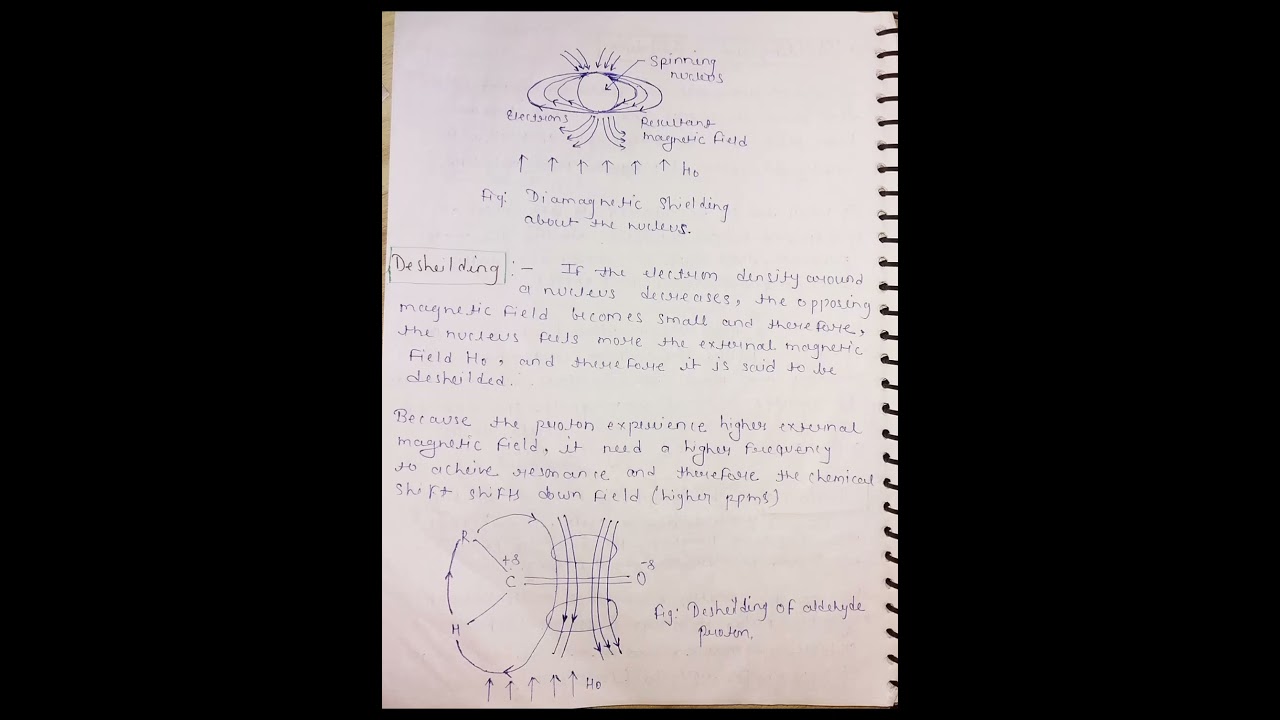 Spinning
nucleus
Electrons
Resultant
magnetic field
H0
Fig: Diamagnetic Shielding
about the nucleus.
Desheilding :- If the electron density around
a nucleus decreases, the opposing
magnetic field becomes small and therefore,
the nucleus feels more the external magnetic
field H0, and therefore it is said to be
desheilded.
Because the proton experience higher external
magnetic field, it need a higher frequency
to acheive resonance and therefore the chemical
shift shifts down field (higher ppms)
R
+δ
-δ
C
O
H
Fig: Desheilding of aldehyde
proton.
H0